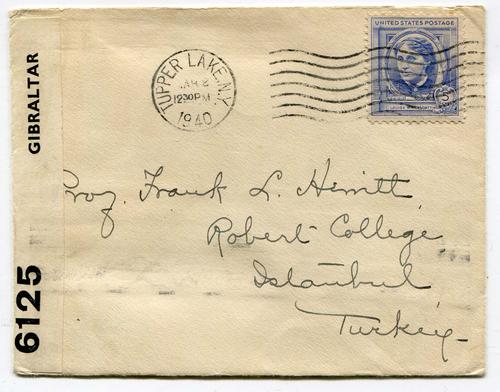 GIBRALTAR
6125
TUPPER LAKE, N.Y.
12:30 PM
1940
UNITED STATES POSTAGE
5
Prof. Frank L. Hewitt,
Robert College
Istanbul,
Turkey